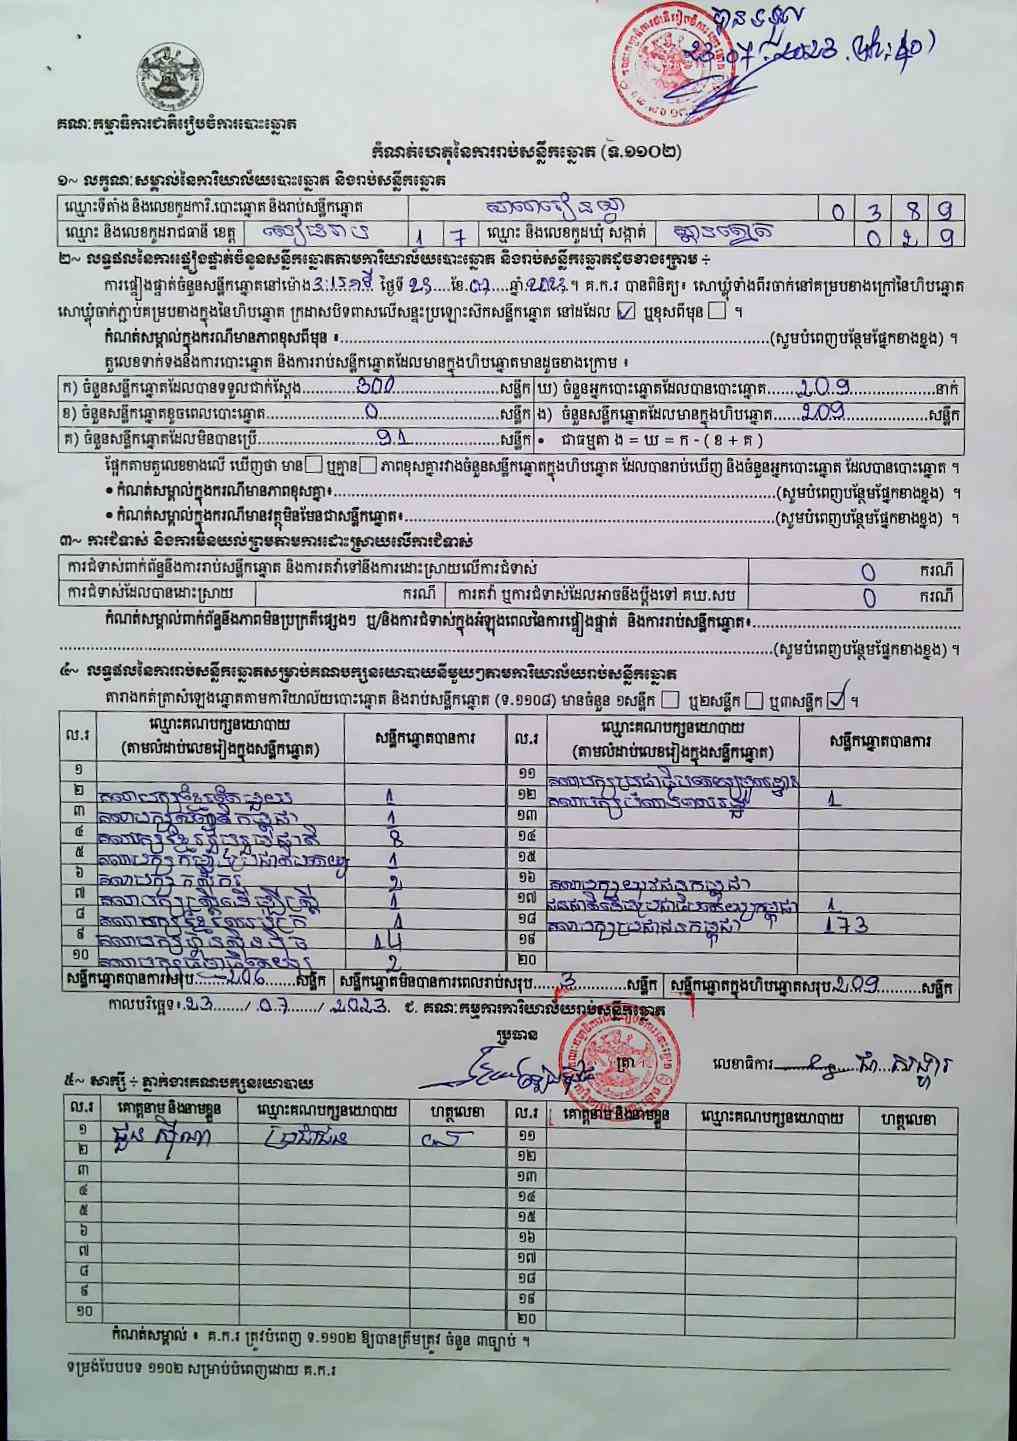 បានទទួល
23.07.2023
គណៈកម្មាធិការជាតិរៀបចំការបោះឆ្នោត
កំណត់ហេតុនៃការរាប់សន្លឹកឆ្នោត (ទ.១១០២)
១~ លក្ខណៈសម្គាល់នៃការិយាល័យបោះឆ្នោត និងរាប់សន្លឹកឆ្នោត
ឈ្មោះទីតាំង និងលេខកូដការិ.បោះឆ្នោត និងរាប់សន្លឹកឆ្នោត សាលារៀន 0 3 8 9
ឈ្មោះ និងលេខកូដរាជធានី ខេត្ត សៀមរាប 1 7 ឈ្មោះ និងលេខកូដឃុំ សង្កាត់ 0 2 9
២~ លទ្ធផលនៃការផ្ទៀងផ្ទាត់ចំនួនសន្លឹកឆ្នោតតាមការិយាល័យបោះឆ្នោត និងរាប់សន្លឹកឆ្នោតដូចខាងក្រោម ÷
ការផ្ទៀងផ្ទាត់ចំនួនសន្លឹកឆ្នោតនៅម៉ោង ថ្ងៃទី 23 ខែ.07 ឆ្នាំ.2023។ គ.ក.រ បានពិនិត្យ៖ សោឃ្លុំទាំងពីរចាក់នៅគម្របខាងក្រៅនៃហិបឆ្នោត
សោឃ្លុំចាក់ភ្ជាប់គម្របខាងក្នុងនៃហិបឆ្នោត ក្រដាសបិទពាសលើសន្ទះប្រឡោះសឹកសន្លឹកឆ្នោត នៅដដែល ☑ ឬខុសពីមុន ☐ ។
កំណត់សម្គាល់ក្នុងករណីមានភាពខុសពីមុន ៖ (សូមបំពេញបន្ថែមផ្នែកខាងខ្នង) ។
តួលេខទាក់ទងនឹងការបោះឆ្នោត និងការរាប់សន្លឹកឆ្នោតដែលមានក្នុងហិបឆ្នោតមានដូចខាងក្រោម ៖
ក) ចំនួនសន្លឹកឆ្នោតដែលបានទទួលជាក់ស្តែង 300 សន្លឹក ឃ) ចំនួនអ្នកបោះឆ្នោតដែលបានបោះឆ្នោត 209 នាក់
ខ) ចំនួនសន្លឹកឆ្នោតខូចពេលបោះឆ្នោត 0 សន្លឹក ង) ចំនួនសន្លឹកឆ្នោតដែលមានក្នុងហិបឆ្នោត 209 សន្លឹក
គ) ចំនួនសន្លឹកឆ្នោតដែលមិនបានប្រើ 91 សន្លឹក • ជាធម្មតា ង = ឃ = ក - ( ខ + គ )
ផ្អែកតាមតួលេខខាងលើ ឃើញថា មាន ☐ ឬគ្មាន ☐ ភាពខុសគ្នារវាងចំនួនសន្លឹកឆ្នោតក្នុងហិបឆ្នោត ដែលបានរាប់ឃើញ និងចំនួនអ្នកបោះឆ្នោត ដែលបានបោះឆ្នោត ។
• កំណត់សម្គាល់ក្នុងករណីមានភាពខុសគ្នា៖ (សូមបំពេញបន្ថែមផ្នែកខាងខ្នង) ។
• កំណត់សម្គាល់ក្នុងករណីមានវត្ថុមិនមែនជាសន្លឹកឆ្នោត៖ (សូមបំពេញបន្ថែមផ្នែកខាងខ្នង) ។
៣~ ការជំទាស់ និងការមិនយល់ព្រមតាមការដោះស្រាយលើការជំទាស់
ការជំទាស់ពាក់ព័ន្ធនឹងការរាប់សន្លឹកឆ្នោត និងការតវ៉ាទៅនឹងការដោះស្រាយលើការជំទាស់ 0 ករណី
ការជំទាស់ដែលបានដោះស្រាយ ករណី ការតវ៉ា ឬការជំទាស់ដែលអាចនឹងប្ដឹងទៅ គឃ.សប 0 ករណី
កំណត់សម្គាល់ពាក់ព័ន្ធនឹងភាពមិនប្រក្រតីផ្សេងៗ ឬ/និងការជំទាស់ក្នុងអំឡុងពេលនៃការផ្ទៀងផ្ទាត់ និងការរាប់សន្លឹកឆ្នោត៖
(សូមបំពេញបន្ថែមផ្នែកខាងខ្នង) ។
៤~ លទ្ធផលនៃការរាប់សន្លឹកឆ្នោតសម្រាប់គណបក្សនយោបាយនីមួយៗតាមការិយាល័យរាប់សន្លឹកឆ្នោត
តារាងកត់ត្រាសំឡេងឆ្នោតតាមការិយាល័យបោះឆ្នោត និងរាប់សន្លឹកឆ្នោត (ទ.១១០៨) មានចំនួន ១សន្លឹក ☐ ឬ២សន្លឹក ☐ ឬ៣សន្លឹក ☑ ។
ល.រ ឈ្មោះគណបក្សនយោបាយ (តាមលំដាប់លេខរៀងក្នុងសន្លឹកឆ្នោត) សន្លឹកឆ្នោតបានការ ល.រ ឈ្មោះគណបក្សនយោបាយ (តាមលំដាប់លេខរៀងក្នុងសន្លឹកឆ្នោត) សន្លឹកឆ្នោតបានការ
១ ១១
២ 1 ១២ 1
៣ 1 ១៣
៤ 8 ១៤
៥ 1 ១៥
៦ គណបក្សកសិករ 2 ១៦ គណបក្សយុវជនកម្ពុជា
៧ គណបក្សស្ត្រីដើម្បីស្ត្រី 1 ១៧ 1
៨ 1 ១៨ គណបក្សប្រជាជនកម្ពុជា 173
៩ គណបក្សហ៊្វុនស៊ិនប៉ិច 14 ១៩
១០ 2 ២០
សន្លឹកឆ្នោតបានការសរុប 206 សន្លឹក សន្លឹកឆ្នោតមិនបានការពេលរាប់សរុប 3 សន្លឹក សន្លឹកឆ្នោតក្នុងហិបឆ្នោតសរុប 209 សន្លឹក
កាលបរិច្ឆេទ៖ 23 / 07 / 2023 ជ. គណៈកម្មការការិយាល័យរាប់សន្លឹកឆ្នោត
ប្រធាន
ត្រា លេខាធិការ
៥~ សាក្សី ÷ ភ្នាក់ងារគណបក្សនយោបាយ
ល.រ គោត្តនាម និងនាមខ្លួន ឈ្មោះគណបក្សនយោបាយ ហត្ថលេខា ល.រ គោត្តនាម និងនាមខ្លួន ឈ្មោះគណបក្សនយោបាយ ហត្ថលេខា
១ ជួន ស៊ីណា ប្រជាជន ១១
២ ១២
៣ ១៣
៤ ១៤
៥ ១៥
៦ ១៦
៧ ១៧
៨ ១៨
៩ ១៩
១០ ២០
កំណត់សម្គាល់ ៖ គ.ក.រ ត្រូវបំពេញ ទ.១១០២ ឱ្យបានត្រឹមត្រូវ ចំនួន ៣ច្បាប់ ។
ទម្រង់បែបបទ ១១០២ សម្រាប់បំពេញដោយ គ.ក.រ